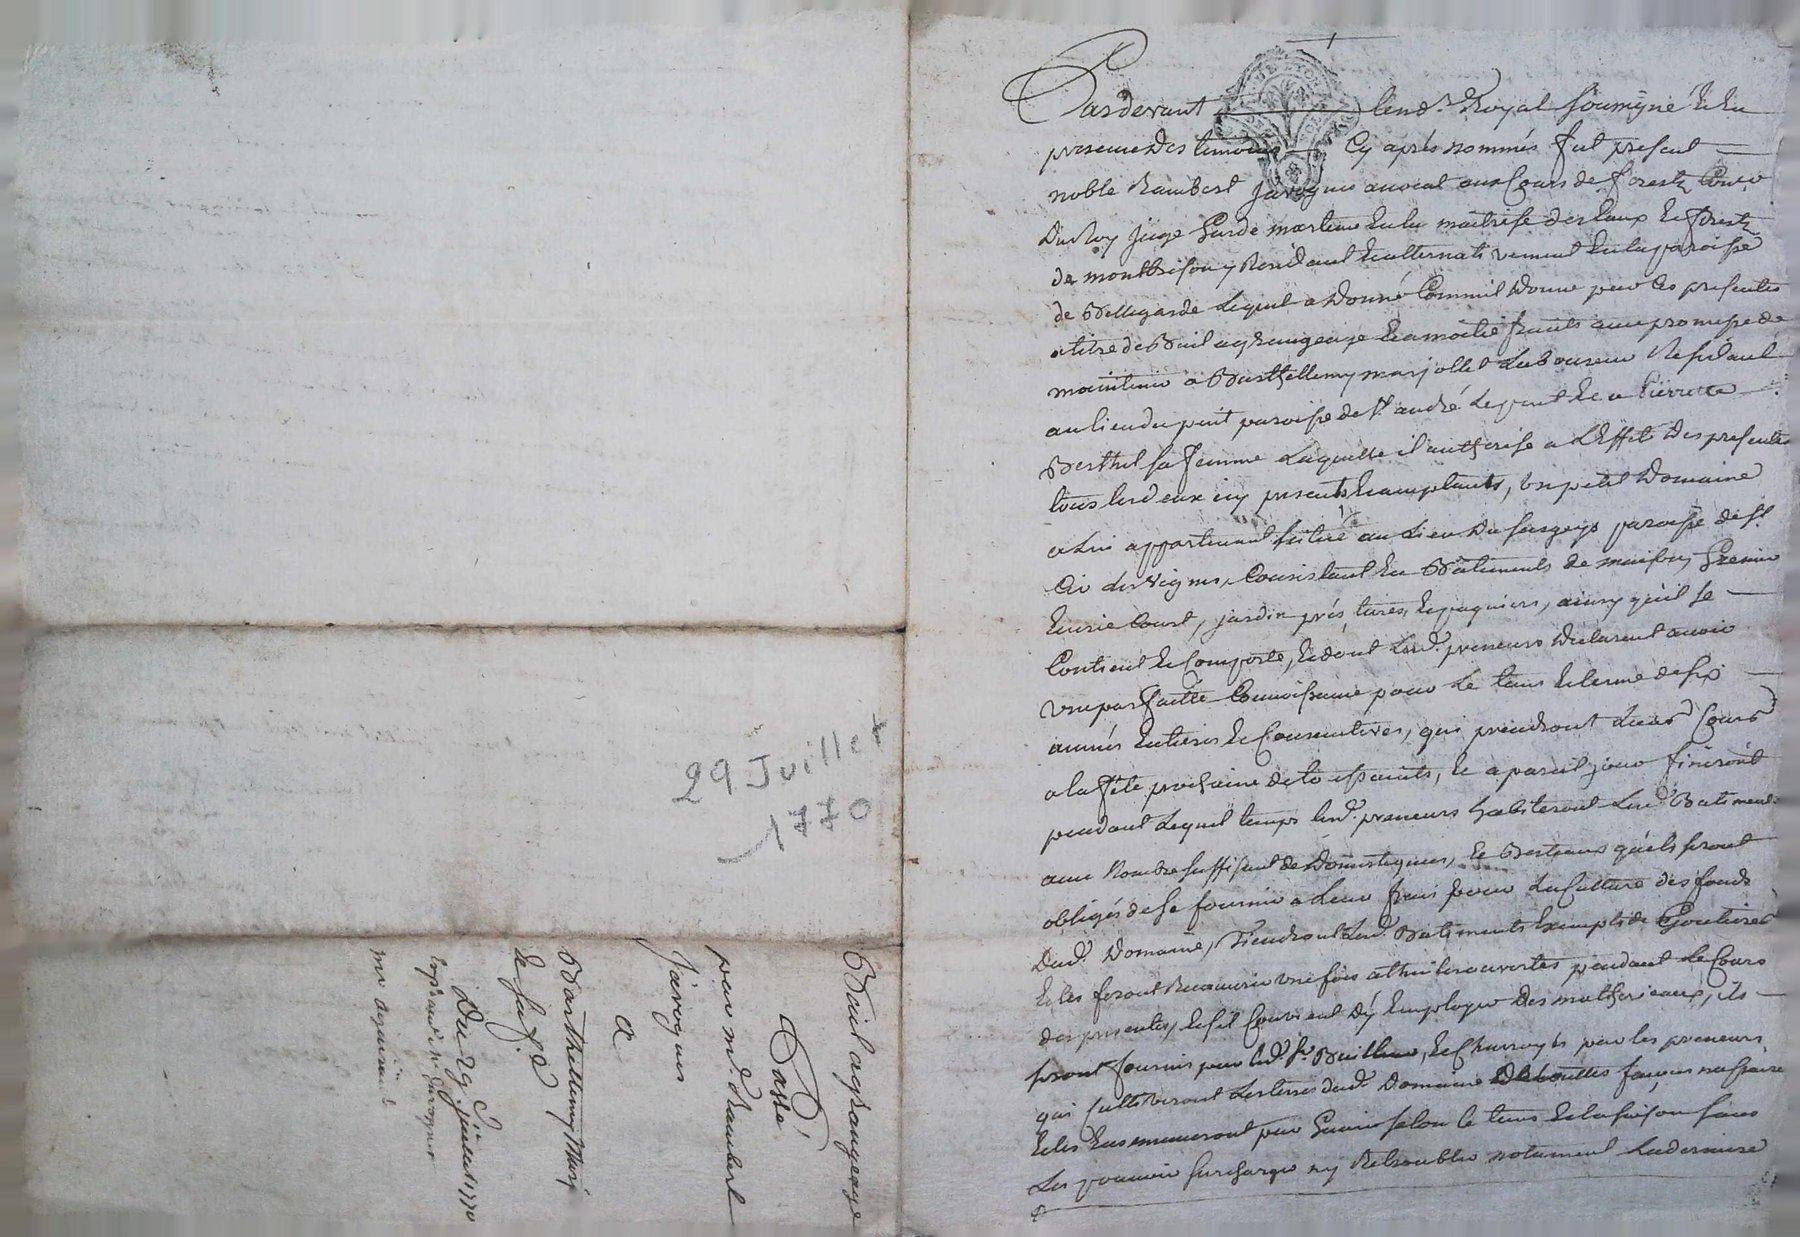 29 Juillet
1770
Bail a grangeage
Passé
par mr. Rambert
Javogues
a
Barthellemy Marj
Du 29. Juillet 1770
Pardevant le nore. Royal soussigné et en
presence des temoins cy après nommés fut present
noble Rambert Javogues avocat aux Cours de forestz Coner.
Du Roy juge Garde marteau en la maitrise des Eaux et forestz
de montbrison y Residant et alternativement en la parroisse
de Bellegarde Lequel a Donné Comme il Donne par les presentes
a titre de Bail a grangeage et a moitié fruits avec promesse de
maintenir a Barthellemy marjollet Laboureur Residant
au lieu du puit paroisse de st. andré le puit et a Pierrette
Berthet sa femme Laquelle il authorise a L'Effet Des presentes
tous les deux icy presents et acceptants, un petit Domaine
a lui appartenant situé au Lieu Du paroisse de st.
Cir les vignes, Consistant en Bâtiments de maison, Grenier
Ecurie Court, jardin prés, terres, et paquiers, ainsy qu'il se
Contient et Comporte, et dont Lesd. preneurs Declarent avoir
une parfaitte Connoissance pour Le tems et terme de six
années Entieres et Consecutives, qui prendront Leurs Cours
a la fête prochaine de toussaints, et a pareil jour finiront
pendant Lequel temps lesd. preneurs habiteront Lesd. Batiments
avec Nombre suffisant de Domestiques, et Bestiaux qu'ils seront
obligés de se fournir a Leur frais pour La Culture des fonds
Dud. Domaine, Tiendront Lesd. Batiments Exempts de Goutieres
et les feront Recouvrir une fois a thuiles ouvertes pendant Le Cours
des presentes, et s'il Convient d'y Employer Des matheriaux, ils
seront fournis par led. sr. Bailleur, et Charroyés par les preneurs
qui Cultiveront Les terres dud. Domaine De touttes façons necessaires
et les Ensemenceront par Grains selon le tems et la saison sans
Les pouvoir surcharger ny Retroubler notament La derniere